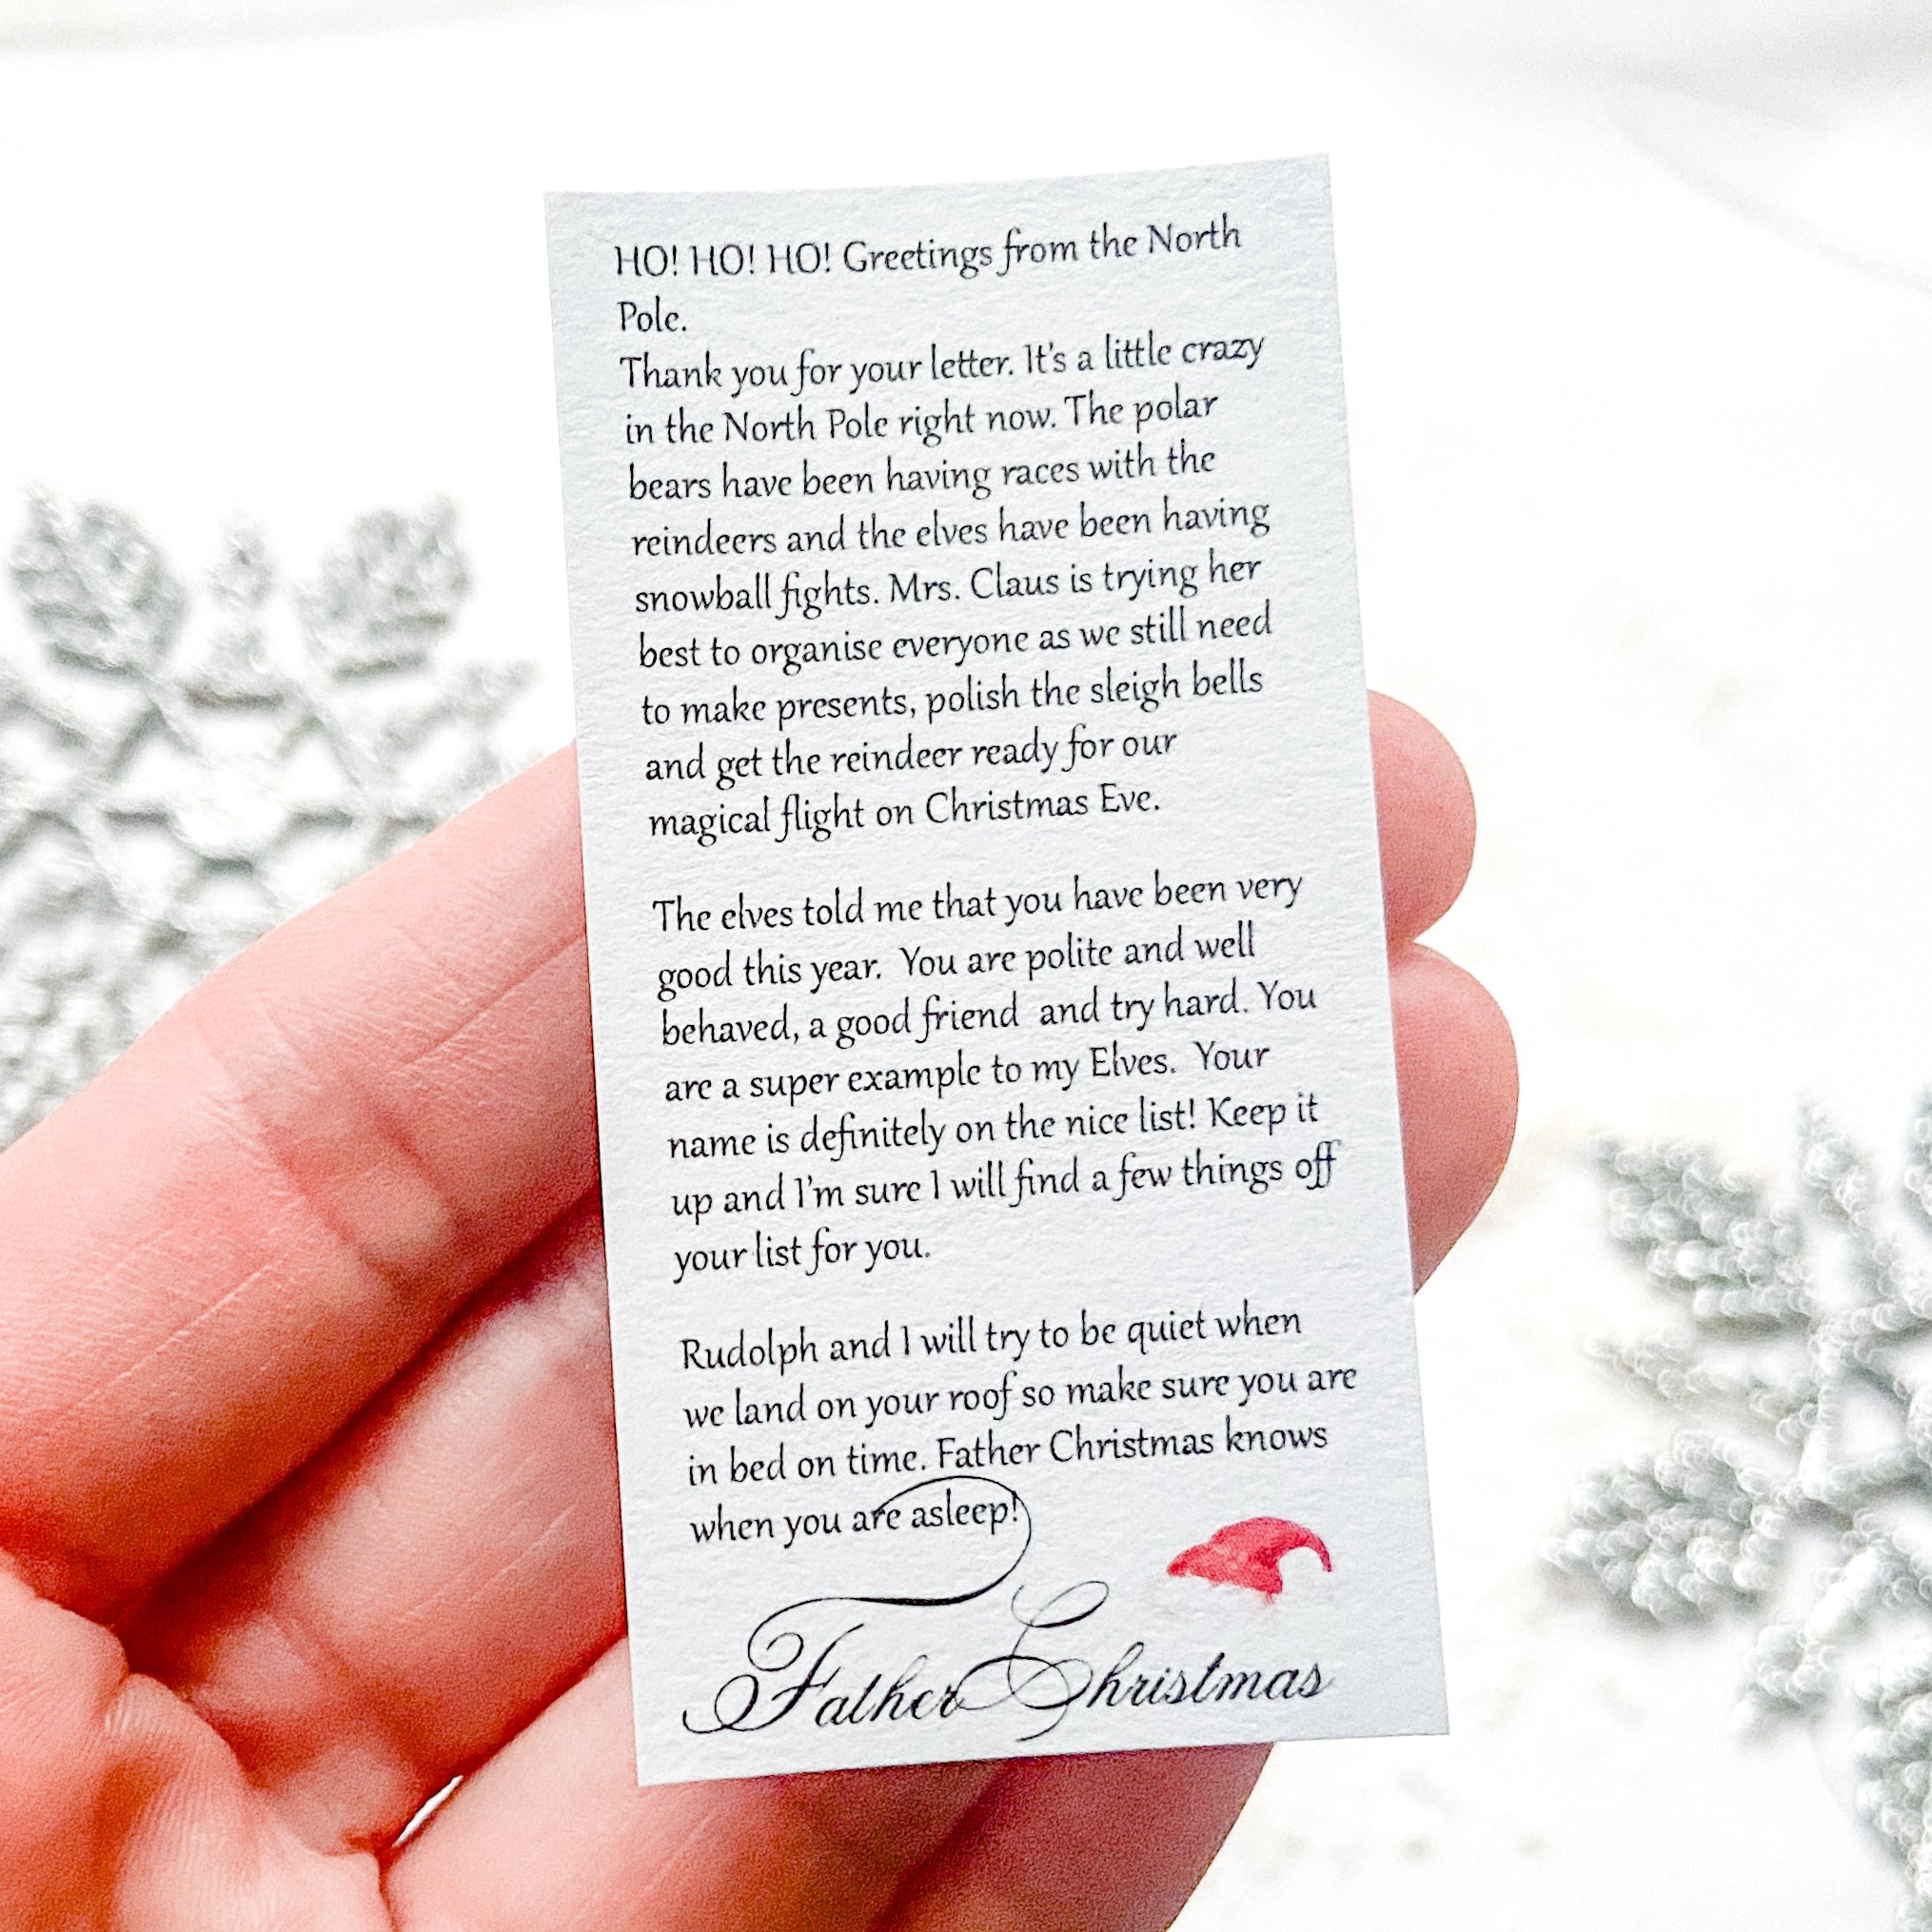 HO! HO! HO! Greetings from the North
Pole.
Thank you for your letter. It's a little crazy
in the North Pole right now. The polar
bears have been having races with the
reindeers and the elves have been having
snowball fights. Mrs. Claus is trying her
best to organise everyone as we still need
to make presents, polish the sleigh bells
and get the reindeer ready for our
magical flight on Christmas Eve.
The elves told me that you have been very
good this year. You are polite and well
behaved, a good friend and try hard. You
are a super example to my Elves. Your
name is definitely on the nice list! Keep it
up and I'm sure I will find a few things off
your list for you.
Rudolph and I will try to be quiet when
we land on your roof so make sure you are
in bed on time. Father Christmas knows
when you are asleep!
Father Christmas